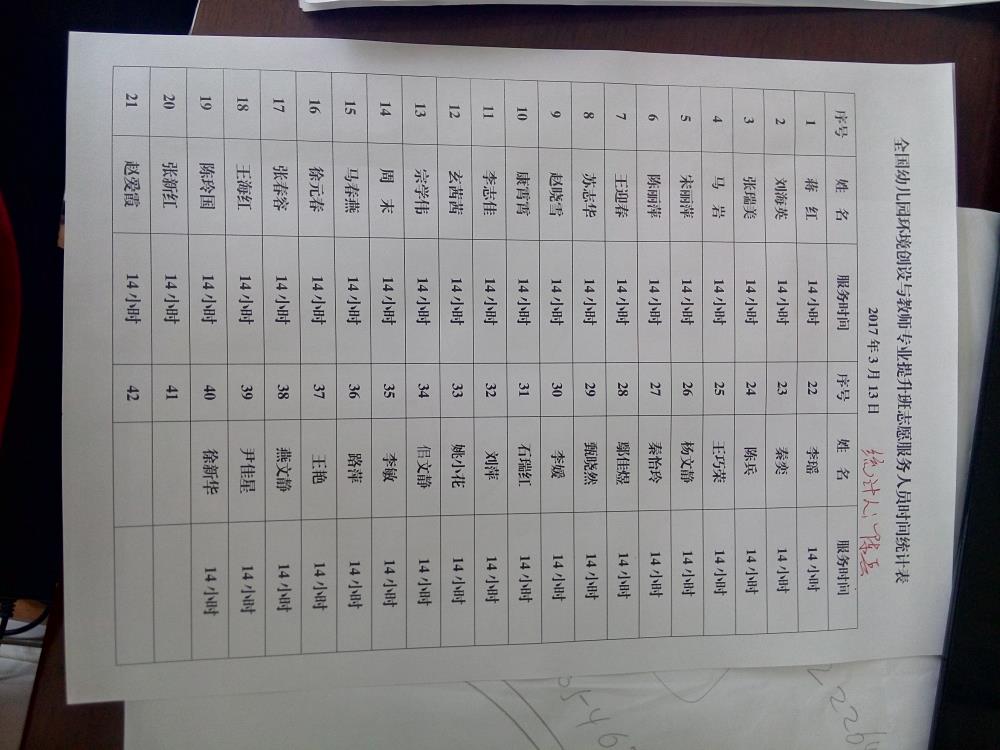 全国幼儿园环境创设与教师专业提升班志愿服务人员时间统计表
2017年3月13日 统计人：陈兵
序号 姓 名 服务时间 序号 姓 名 服务时间
1 蒋 红 14小时 22 李瑶 14小时
2 刘海英 14小时 23 秦奕 14小时
3 张瑞美 14小时 24 陈兵 14小时
4 马 岩 14小时 25 王巧荣 14小时
5 宋丽萍 14小时 26 杨文静 14小时
6 陈丽萍 14小时 27 秦怡玲 14小时
7 王迎春 14小时 28 鄢佳煜 14小时
8 苏志华 14小时 29 甄晓然 14小时
9 赵晓雪 14小时 30 李媛 14小时
10 康霄霄 14小时 31 石瑞红 14小时
11 李志佳 14小时 32 刘萍 14小时
12 玄茜茜 14小时 33 姚小花 14小时
13 宗学伟 14小时 34 伯文静 14小时
14 周 末 14小时 35 李敏 14小时
15 马春燕 14小时 36 路萍 14小时
16 徐元春 14小时 37 王艳 14小时
17 张春容 14小时 38 燕文静 14小时
18 王海红 14小时 39 尹佳星 14小时
19 陈玲国 14小时 40 徐新华 14小时
20 张新红 14小时 41
21 赵爱霞 14小时 42